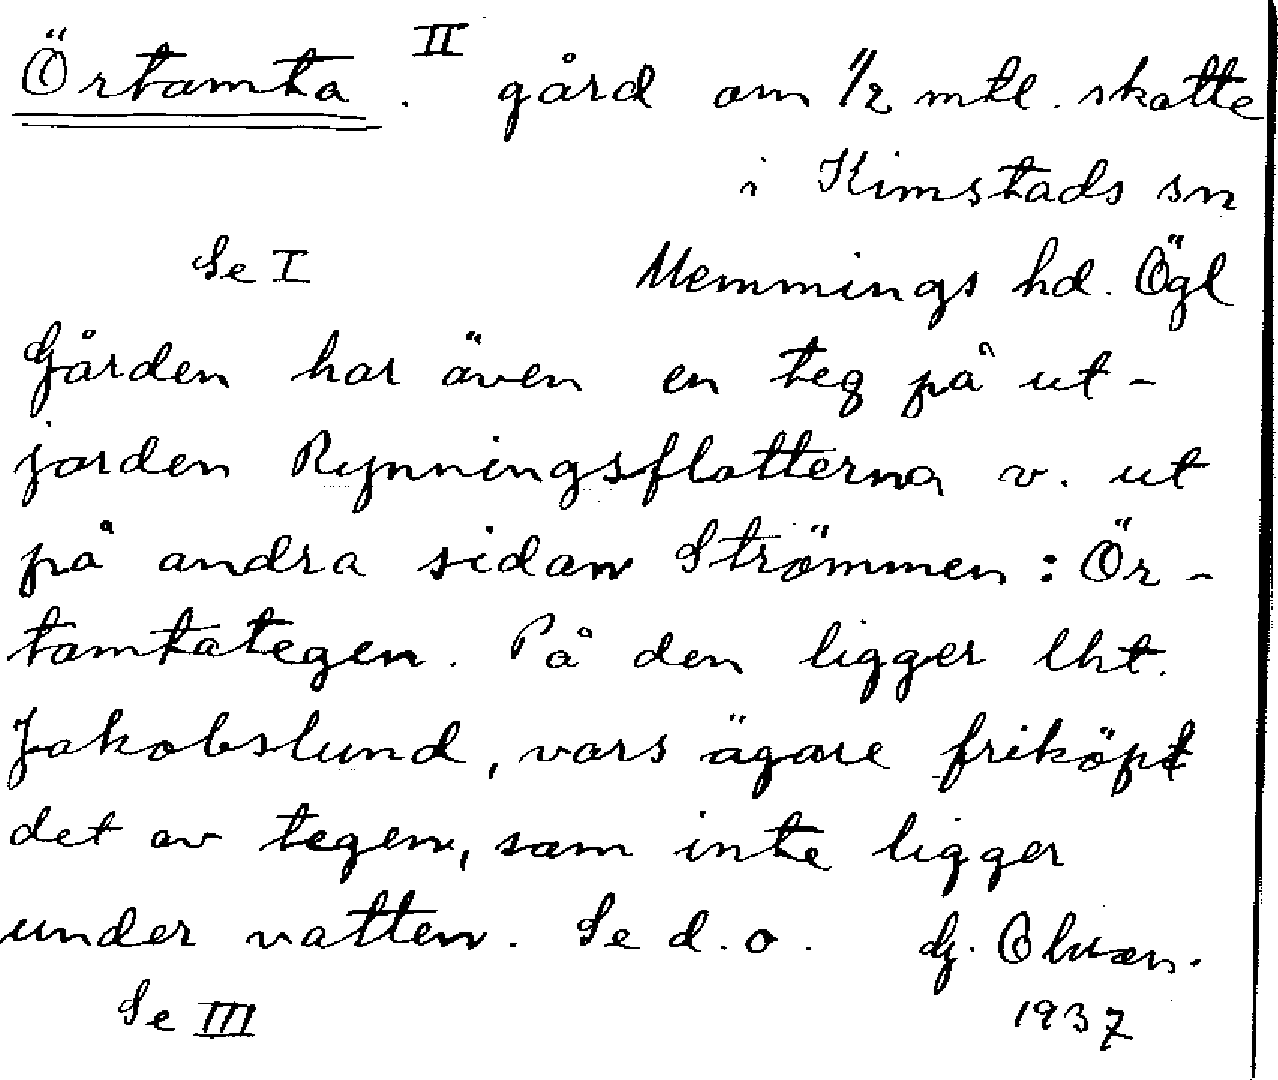 Örtomta. II gård om 1/2 mtl. skatte
i Kimstads sn
Se I Memmings hd. Ögl
Gården har även en teg på ut-
jorden Rynningsflatterna v. ut
på andra sidan Strömmen: Ör-
tomtategen. På den ligger lht.
Jakobslund, vars ägare friköpt
det av tegen, som inte ligger
under vatten. Se d. o. G.
Se III 1937